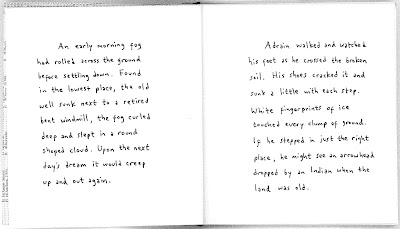 An early morning fog
had rolled across the ground
before settling down. Found
in the lowest place, the old
well sunk next to a retired
bent windmill, the fog curled
deep and slept in a round
shaped cloud. Upon the next
day's dream it would creep
up and out again.
Adrain walked and watched
his feet as he crossed the broken
soil. His shoes cracked it and
sunk a little with each step.
White fingerprints of ice
touched every clump of ground.
If he stepped in just the right
place, he might see an arrowhead
dropped by an Indian when the
land was old.